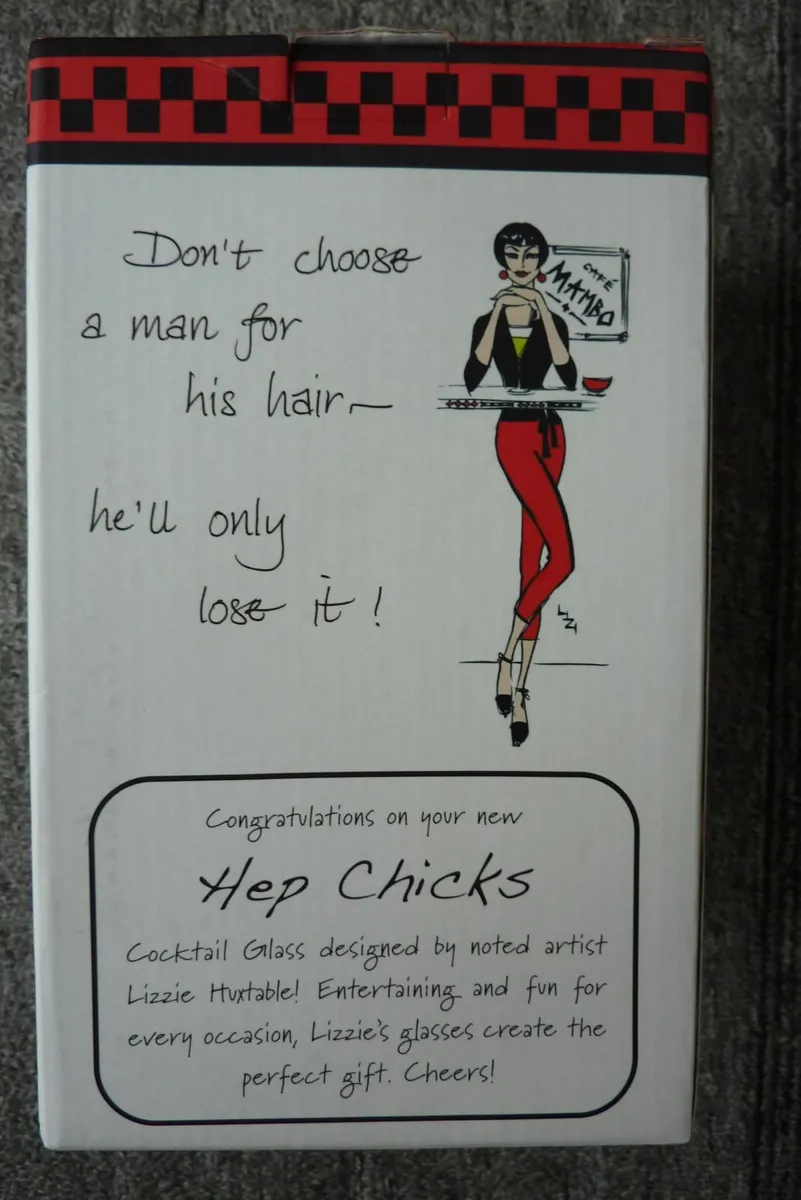 Don't choose
a man for
his hair—
he'll only
lose it!
CAFÉ
MAMBO
LIZ
Congratulations on your new
Hep Chicks
Cocktail Glass designed by noted artist
Lizzie Huxtable! Entertaining and fun for
every occasion, Lizzie's glasses create the
perfect gift. Cheers!